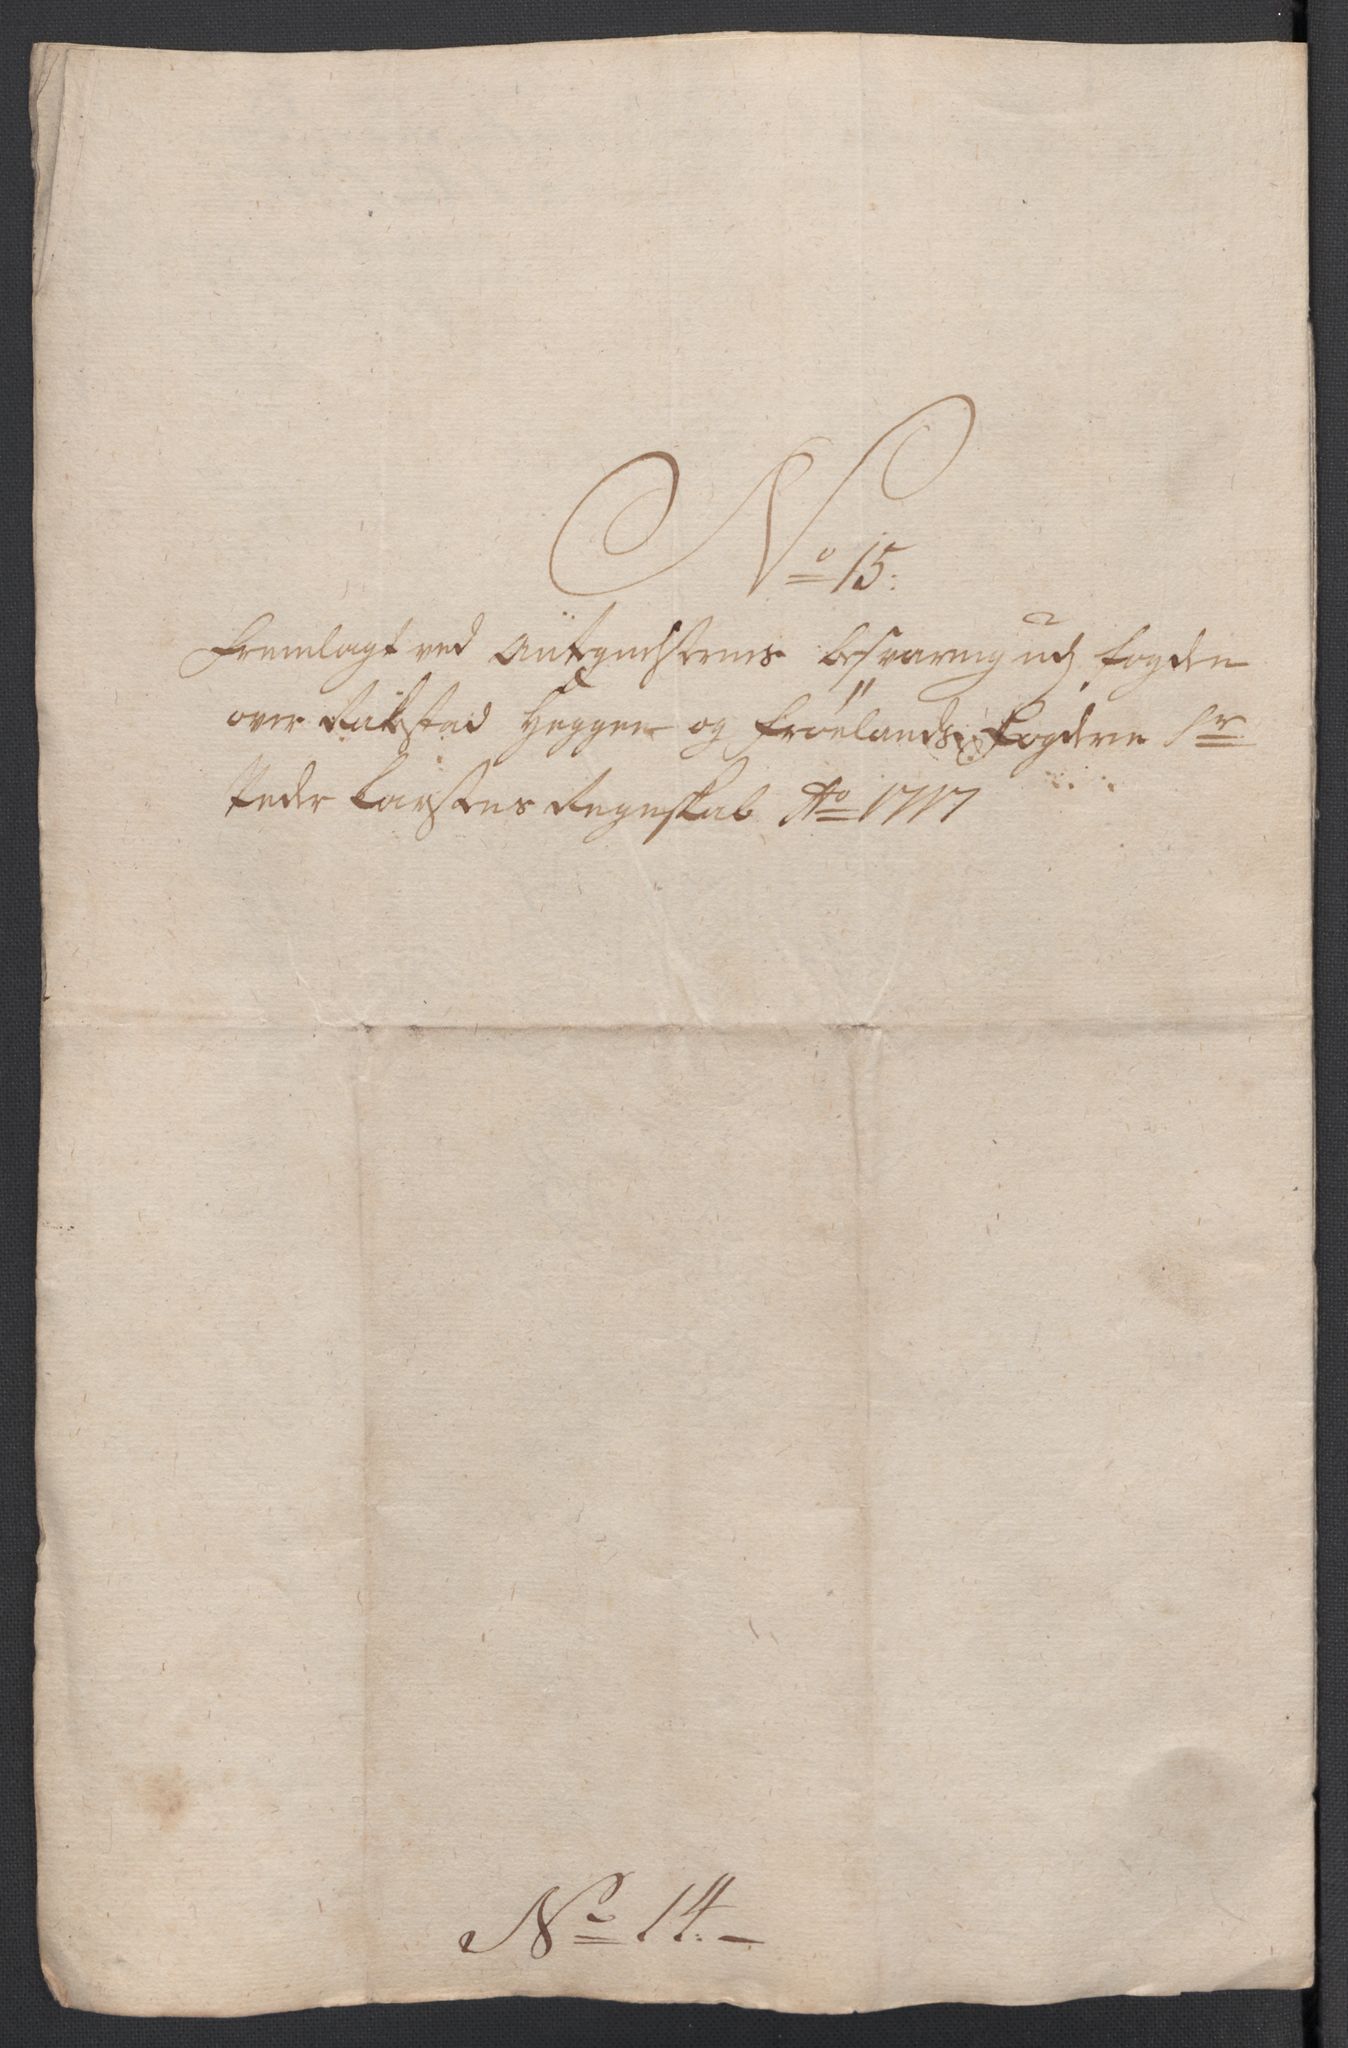 No 15:
Fremlagt ved Antegnelsernes besvaring udj fogden
over Rakestad Heggen og Frølands Fogderie Sr
Peder Larsens Regenskab Ao 1717
No 14.